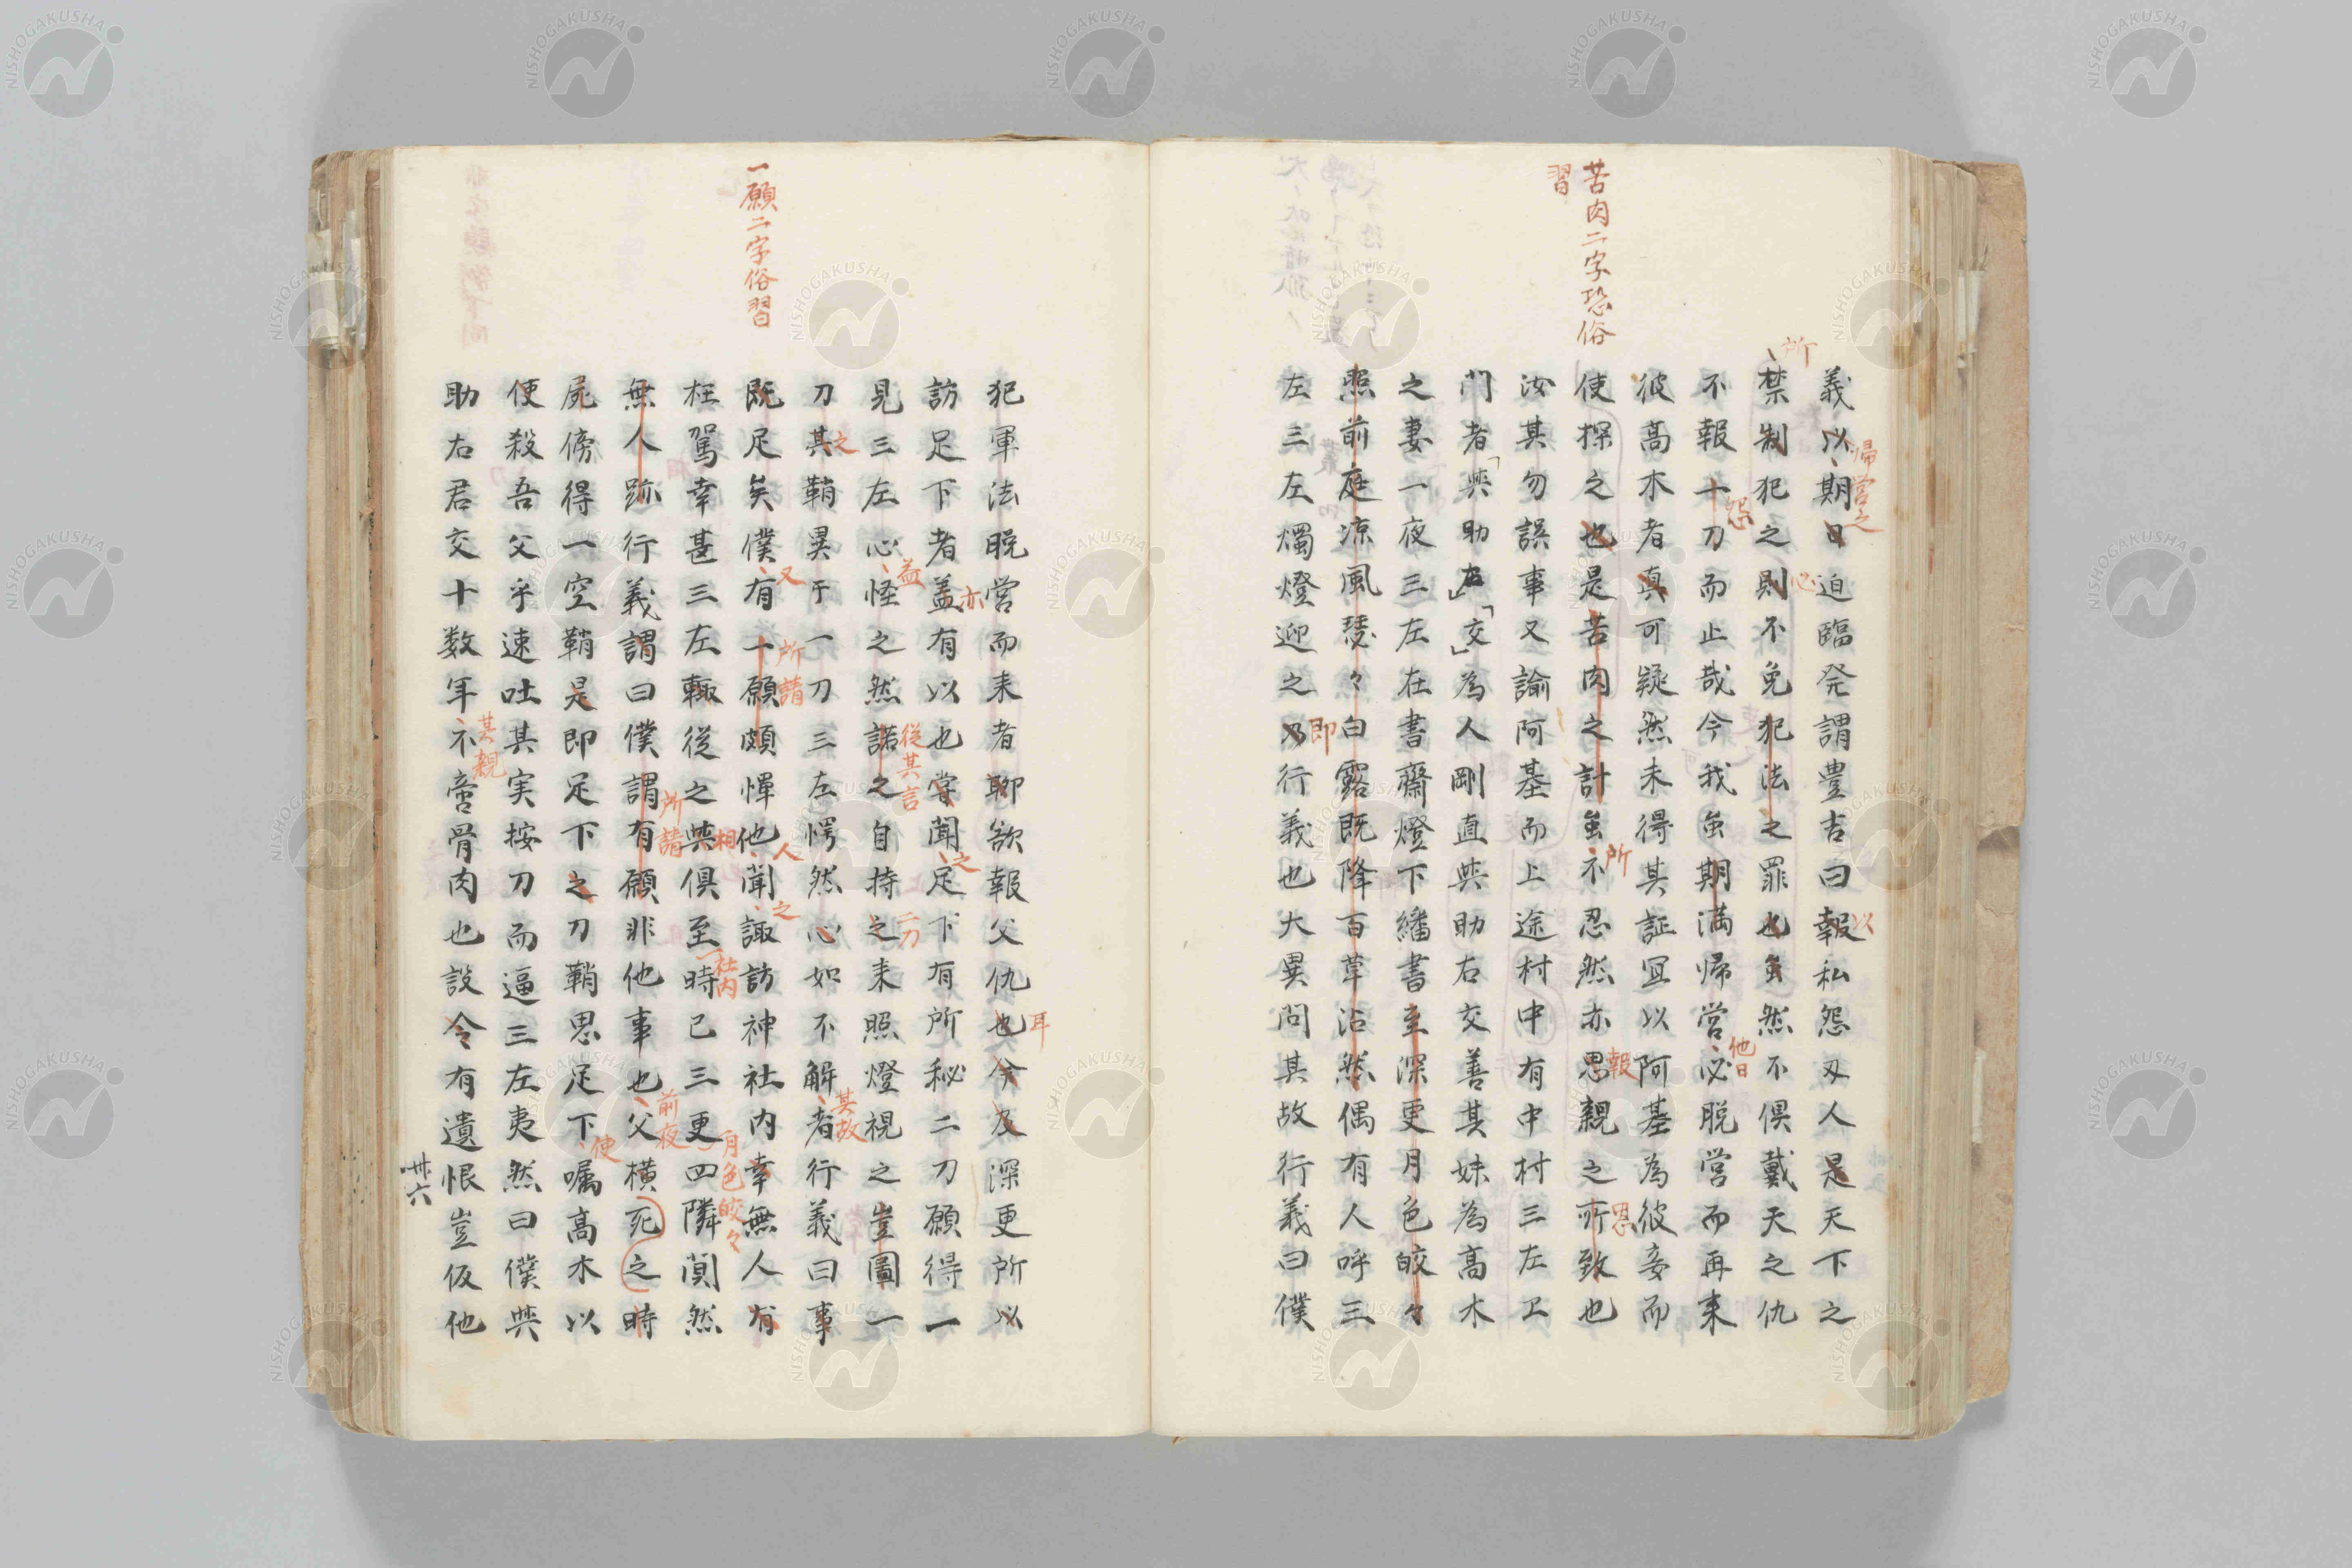 苦肉二字恐俗
習
義以期日迫臨発謂豊吉曰報私怨刄人是天下之
帰営之
以
所
禁制犯之則不免犯法之罪也虽然不倶戴天之仇
心
不報十刀而止哉今我虽期満帰営必脱営而再来
怨
他日
彼高木者真可疑然未得其証冝以阿基為彼妾而
使探之也是苦肉之計虽不忍然亦思親之所致也
所
報
恩
汝其勿誤事又諭阿基而上途村中有中村三左卫
門者與助右交為人剛直與助右交善其妹為高木
之妻一夜三左在書齋燈下繙書至深更月色皎々
照前庭凉風瑟々白露既降百草沾然偶有人呼三
左三左燭燈迎之乃行義也大異問其故行義曰僕
即
犯軍法脱営而来者聊欲報父仇也今及深更所以
耳
訪足下者盖有以也嘗聞足下有所秘二刀願得一
亦
之
見三左心怪之然諾之自持之来照燈視之豈圖一
益
從其言
二刀
刀其鞘異于一刀三左愕然心如不解者行義曰事
之
其故
一願二字俗習
既足矣僕有一願頗憚他聞諏訪神社内幸無人有
又
所請
人
之
枉駕幸甚三左輙從之與倶至時已三更四隣闃然
相
社内
月色皎々
無人跡行義謂曰僕謂有願非他事也父横死之時
所請
前夜
屍傍得一空鞘是即足下之刀鞘思足下嘱高木以
使
便殺吾父乎速吐其実按刀而逼三左夷然曰僕與
助右君交十数年不啻骨肉也設令有遺恨豈仮他
其親
卅六
NISHOGAKUSHA